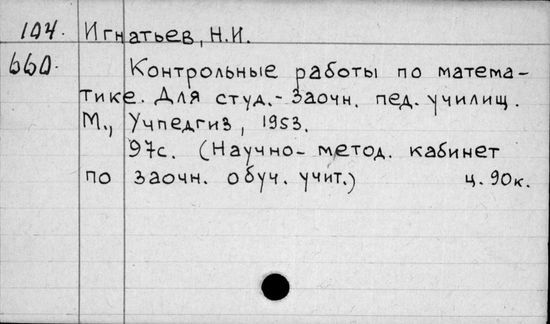 104. Игнатьев, Н.И.
660. Контрольные работы по матема-
тике. Для студ.- заочн. пед. училищ.
М., Учпедгиз, 1953.
97с. (Научно- метод. кабинет
по заочн. обуч. учит.) ц. 90к.